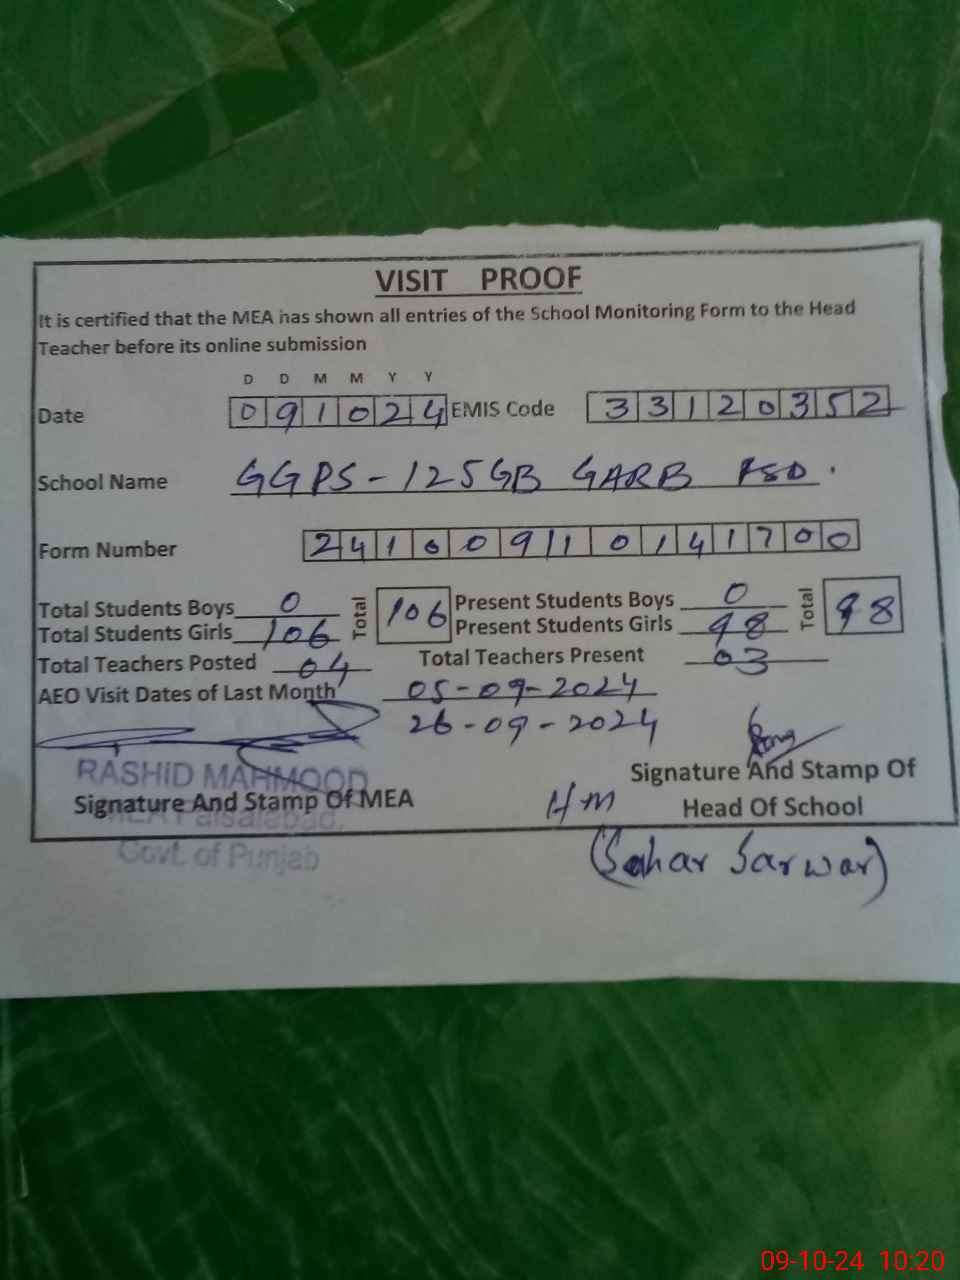 VISIT PROOF
It is certified that the MEA has shown all entries of the School Monitoring Form to the Head
Teacher before its online submission
D D M M Y Y
Date 091024 EMIS Code 33120352
School Name GGPS-125GB GARB FSD.
Form Number 241009110141700
Total Students Boys 0 Total 106 Present Students Boys 0 Total 98
Total Students Girls 106 Present Students Girls 98
Total Teachers Posted 04 Total Teachers Present 03
AEO Visit Dates of Last Month 05-09-2024
26-09-2024
RASHID MAHMOOD
Signature And Stamp Of MEA
MEA Faisalabad,
Govt. of Punjab
Signature And Stamp Of
HM Head Of School
(Sahar Sarwar)
09-10-24 10:20